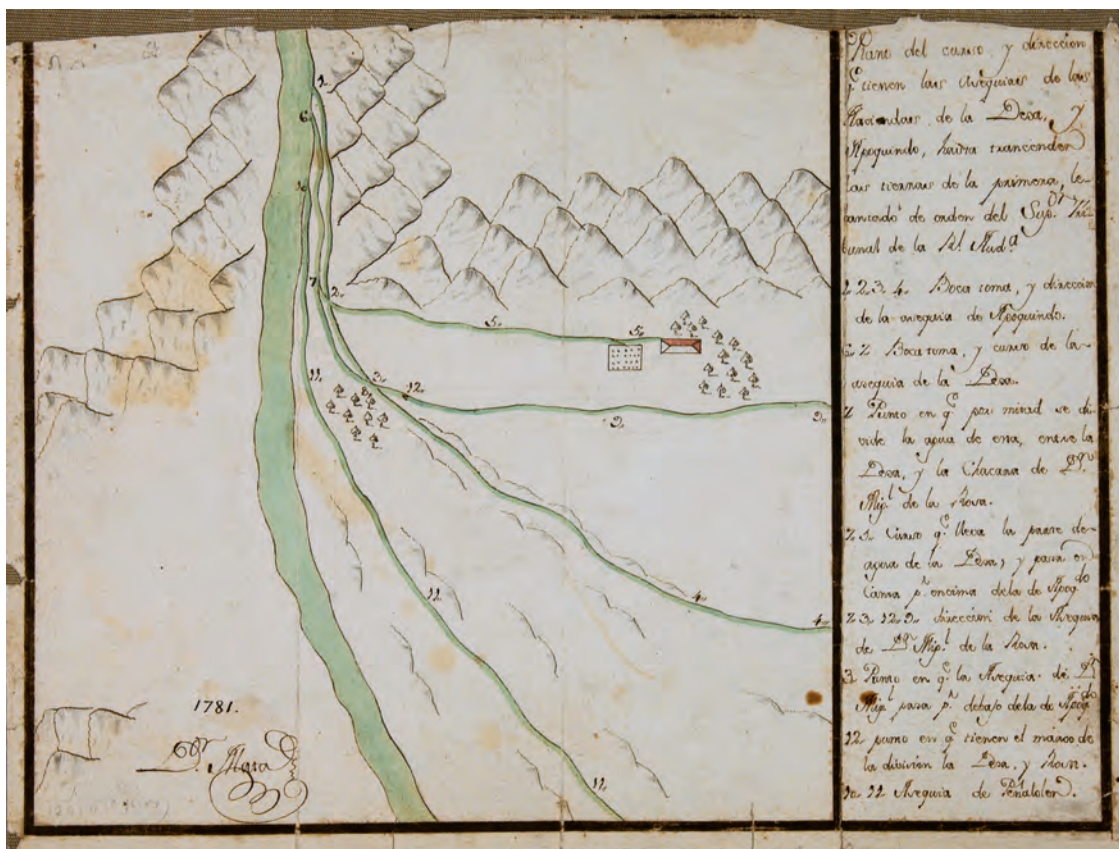 Plano del curso y direccion
q.e tienen las Asequias de las
Haciendas de la Desa, y
Apoquindo, hasta transcender
las tierras de la primera, le
bantado de orden del Sup.or Tri
bunal de la R.l Aud.a
1. 2. 3. 4. Boca toma, y direccion
de la asequia de Apoquindo.
6. 7. Boca toma, y curso de la
asequia de la Desa.
7. Punto en q.e por mitad se di
vide la agua de esta, entre la
Desa, y la Chacara de D.n
Mig.l de la Rosa.
7. 5. Curso q.e lleva la parte de
agua de la Desa, y pasa en
Canoa p.r encima de la de Apoq.do
7. 3. 12. 9. direccion de la Asequia
de D.n Mig.l de la Rosa.
3. Punto en q.e la Asequia de D.n
Mig.l pasa p.r debajo de la de Apoq.do
12. punto en q.e tienen el marco de
la division la Desa, y Rosa.
10. 11. Asequia de Peñalolen.
1.
6.
10.
7.
2.
5.
5.
11.
3.
12.
9.
9.
4.
4.
11.
11.
1781.